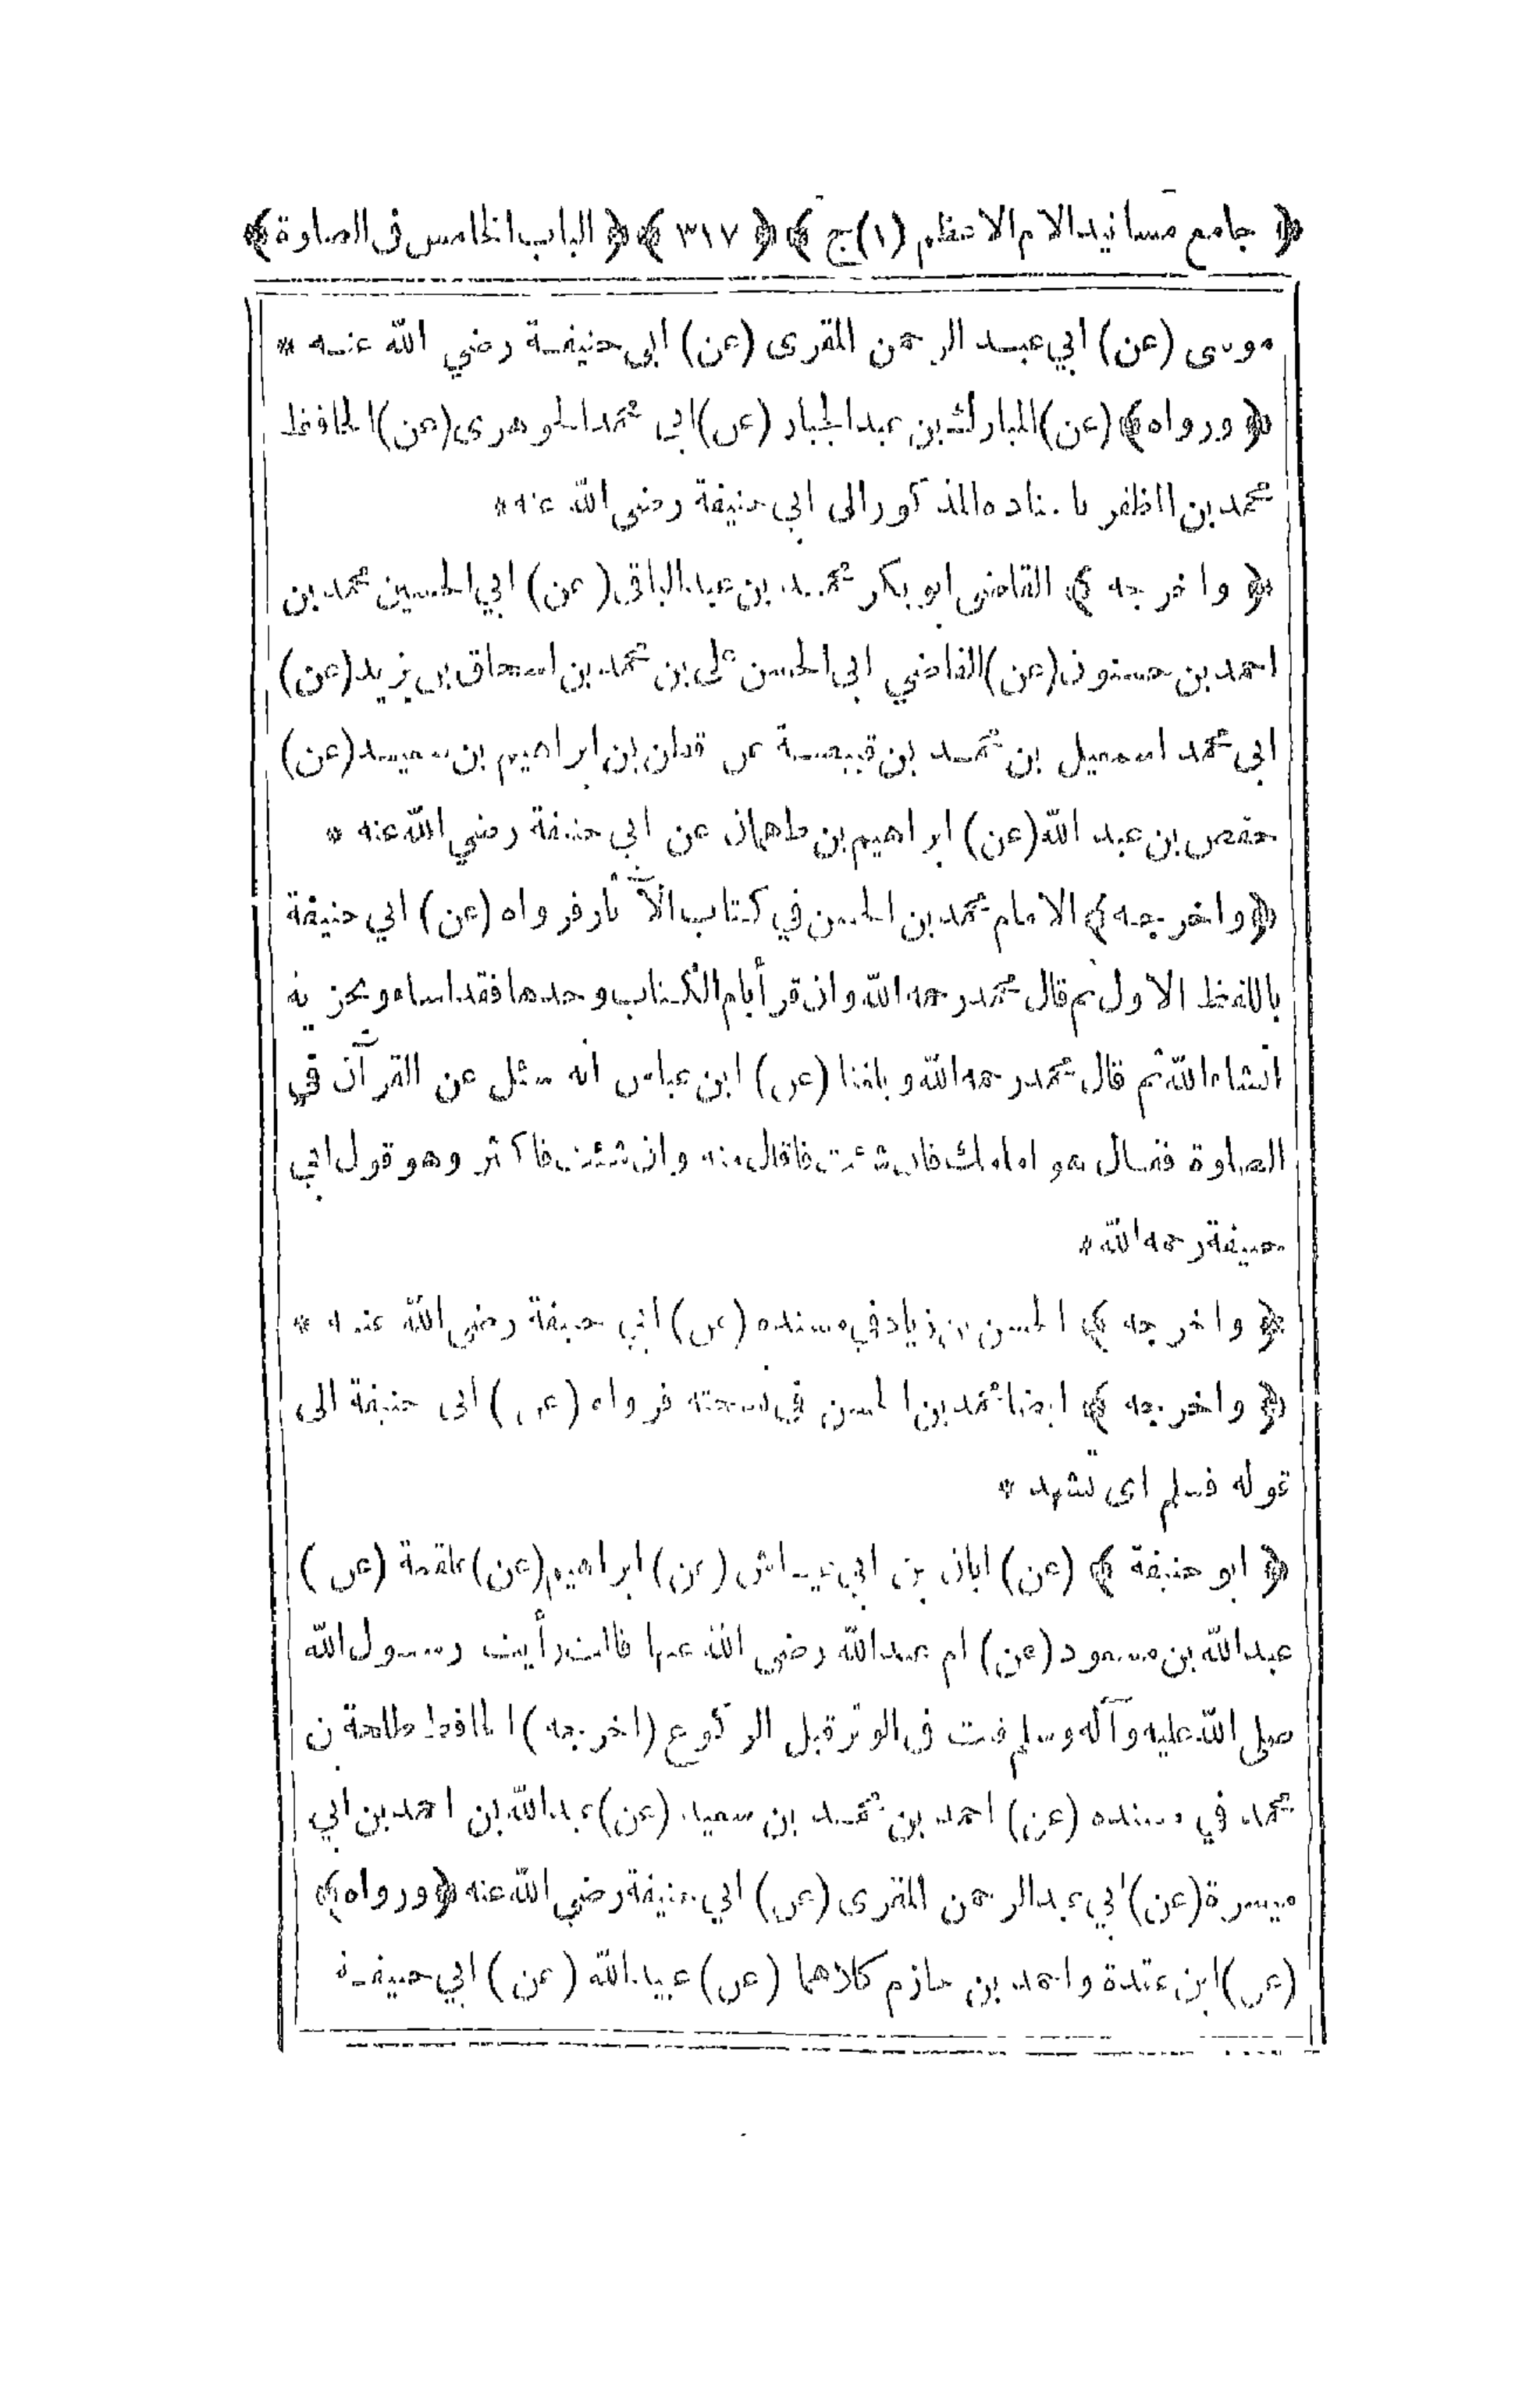 ﴿ جامع مسانيد الامام الاعظم (١) ج ﴾ ﴿ ٣١٧ ﴾ ﴿ الباب الخامس فى الصلوة ﴾
موسى (عن) ابي عبد الرحمن المقرى (عن) ابى حنيفة رضي الله عنه *
﴿ ورواه ﴾ (عن) المبارك بن عبد الجبار (عن) ابى محمد الجوهرى (عن) الحافظ
محمد بن المظفر باسناده المذكور الى ابى حنيفة رضى الله عنه *
﴿ واخرجه ﴾ القاضى ابو بكر محمد بن عبد الباقى (عن) ابي الحسين محمد بن
احمد بن حسنون (عن) القاضي ابى الحسن على بن محمد بن اسحاق بن يزيد (عن)
ابى محمد اسمعيل بن محمد بن قبيصة عن قطن بن ابراهيم بن سعيد (عن)
حفص بن عبد الله (عن) ابراهيم بن طهمان عن ابي حنيفة رضي الله عنه *
﴿ واخرجه ﴾ الامام محمد بن الحسن في كتاب الآثار فرواه (عن) ابي حنيفة
باللفظ الاول ثم قال محمد رحمه الله وان قرأ بام الكتاب وحدها فقد اساء ويجزيه
انشاء الله ثم قال محمد رحمه الله وبلغنا (عن) ابن عباس انه سئل عن القرآن في
الصلوة فقال هو امامك فان شئت فاقلل منه وان شئت فاكثر وهو قول ابي
حنيفة رحمه الله *
﴿ واخرجه ﴾ الحسن بن زياد في مسنده (عن) ابي حنيفة رضي الله عنه *
﴿ واخرجه ﴾ ايضا محمد بن الحسن في نسخته فرواه (عن) ابى حنيفة الى
قوله فسلم اى تشهد *
﴿ ابو حنيفة ﴾ (عن) ابان بن ابي عياش (عن) ابراهيم (عن) علقمة (عن)
عبد الله بن مسعود (عن) ام عبد الله رضى الله عنها قالت رأيت رسول الله
صلى الله عليه وآله وسلم قنت فى الوتر قبل الركوع (اخرجه) الحافظ طلحة بن
محمد في مسنده (عن) احمد بن محمد بن سعيد (عن) عبد الله بن احمد بن ابي
ميسرة (عن) ابي عبد الرحمن المقرى (عن) ابي حنيفة رضي الله عنه ﴿ ورواه ﴾
(عن) ابن عقدة واحمد بن حازم كلاهما (عن) عبيد الله (عن) ابي حنيفة